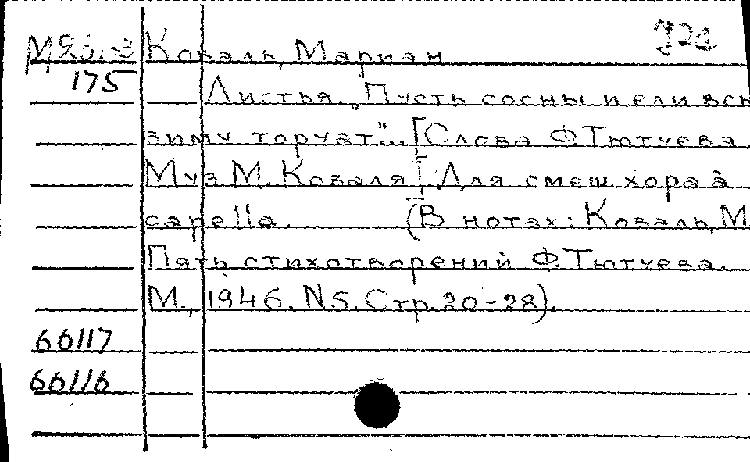 Коваль, Мариан
175 Листья. „Пусть сосны и ели вск
зиму торчат"... [Слова Ф. Тютчева
Муз М. Коваля]. Для смеш. хора а
capella. (В нотах: Коваль, М
Пять стихотворений Ф. Тютчева.
М., 1946. N5. Стр. 20-28).
66117
66116